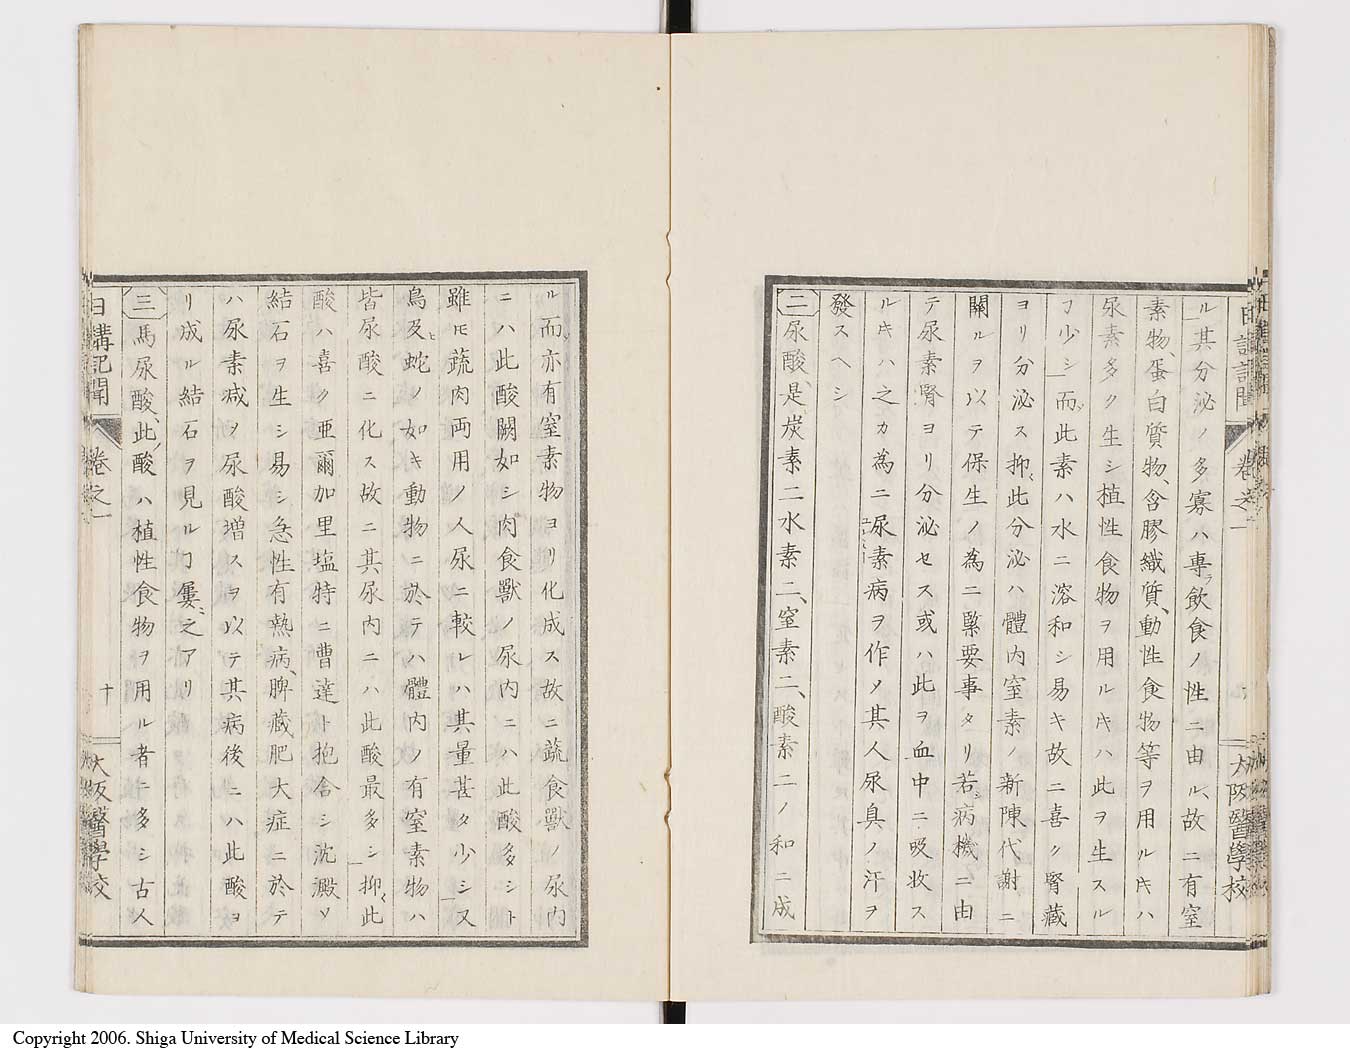 日講記聞 卷之一 大阪醫學校
ル其分泌ノ多寡ハ專ラ飲食ノ性ニ由ル、故ニ有窒
素物、蛋白質物、含膠纖質、動性食物等ヲ用ルキハ
尿素多ク生シ植性食物ヲ用ルキハ此ヲ生スル
ヿ少シ而ド此素ハ水ニ溶和シ易キ故ニ喜ク腎藏
ヨリ分泌ス抑〻此分泌ハ體内窒素ノ新陳代謝ニ
關ルヲ以テ保生ノ為ニ緊要事タリ若シ病機ニ由
テ尿素腎ヨリ分泌セス或ハ此ヲ血中ニ吸收ス
ルキハ之カ為ニ尿素病ヲ作メ其人尿臭ノ汗ヲ
發スヘシ
二尿酸、是炭素二水素二、窒素二、酸素二ノ和ニ成
ル而ド亦有窒素物ヨリ化成ス故ニ蔬食獸ノ尿内
ニハ此酸闕如シ肉食獸ノ尿内ニハ此酸多シト
雖モ蔬肉両用ノ人尿ニ較レハ其量甚タ少シ又
鳥及ヒ蛇ノ如キ動物ニ於テハ體内ノ有窒素物ハ
皆尿酸ニ化ス故ニ其尿内ニハ此酸最多シ抑〻此
酸ハ喜ク亜爾加里塩特ニ曹達ト抱合シ沈澱ソ
結石ヲ生シ易シ急性有熱病、脾藏肥大症ニ於テ
ハ尿素減ヲ尿酸増スヲ以テ其病後ニハ此酸ヨ
リ成ル結石ヲ見ルヿ屢〻之アリ
三馬尿酸、此酸ハ植性食物ヲ用ル者ニ多シ古人
日講記聞 卷之一 十 大阪醫學校
Copyright 2006. Shiga University of Medical Science Library